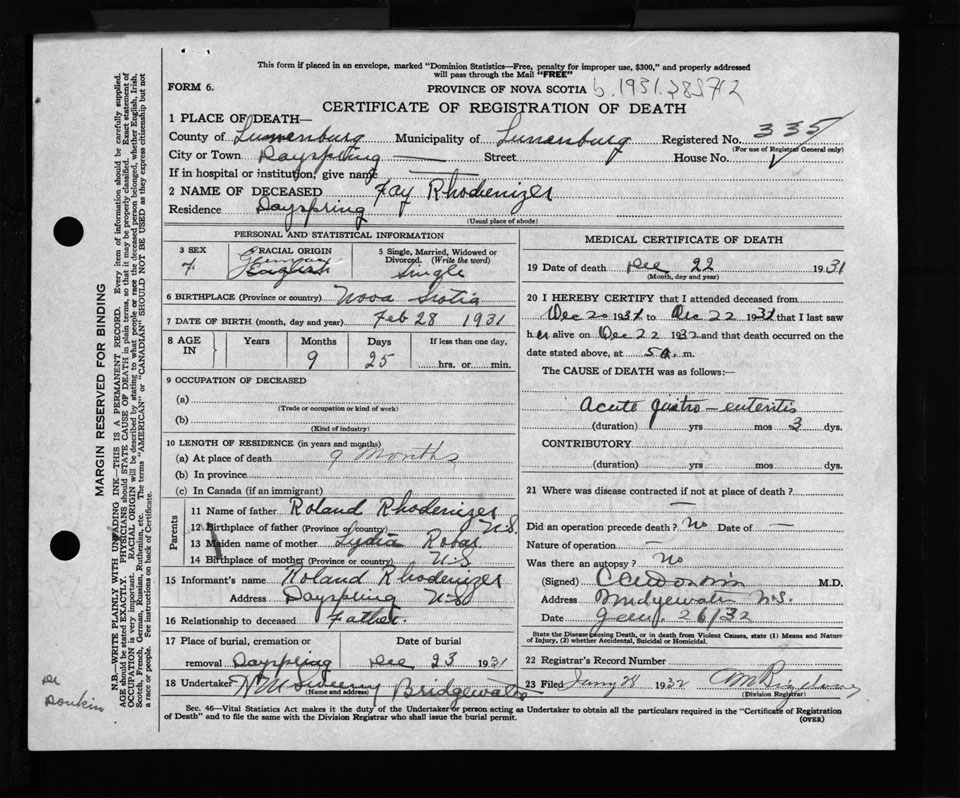 This form if placed in an envelope, marked "Dominion Statistics—Free, penalty for improper use, $300," and properly addressed
will pass through the Mail "FREE"
FORM 6. PROVINCE OF NOVA SCOTIA b.1931.
CERTIFICATE OF REGISTRATION OF DEATH
1 PLACE OF DEATH—
County of Lunenburg Municipality of Lunenburg Registered No. 335
(For use of Registrar General only)
City or Town Dayspring — Street House No.
If in hospital or institution, give name —
2 NAME OF DECEASED Fay Rhodenizer
Residence Dayspring
(Usual place of abode)
PERSONAL AND STATISTICAL INFORMATION
3 SEX f. 4 RACIAL ORIGIN German English 5 Single, Married, Widowed or Divorced. (Write the word) Single
6 BIRTHPLACE (Province or country) Nova Scotia
7 DATE OF BIRTH (month, day and year) Feb 28 1931
8 AGE IN Years Months 9 Days 25 If less than one day, hrs. or min.
9 OCCUPATION OF DECEASED
(a)
(Trade or occupation or kind of work)
(b)
(Kind of industry)
10 LENGTH OF RESIDENCE (in years and months)
(a) At place of death 9 Months
(b) In province
(c) In Canada (if an immigrant)
Parents
11 Name of father Roland Rhodenizer
12 Birthplace of father (Province or country) N.S.
13 Maiden name of mother Lydia
14 Birthplace of mother (Province or country) N.S
15 Informant's name Roland Rhodenizer
Address Dayspring N.S
16 Relationship to deceased Father.
17 Place of burial, cremation or removal Dayspring Date of burial Dec 23 1931
18 Undertaker Bridgewater
(Name and address)
MEDICAL CERTIFICATE OF DEATH
19 Date of death Dec 22 1931
(Month, day and year)
20 I HEREBY CERTIFY that I attended deceased from
Dec 20 to Dec 22 that I last saw
her alive on Dec 22 1932 and that death occurred on the
date stated above, at 5 a. m.
The CAUSE of DEATH was as follows:—
Acute gastro-enteritis
(duration) yrs mos 3 dys.
CONTRIBUTORY
(duration) yrs mos dys.
21 Where was disease contracted if not at place of death?
—
Did an operation precede death? No Date of —
Nature of operation —
Was there an autopsy? No
(Signed) M.D.
Address Bridgewater N.S.
Date 26/32
State the Disease causing Death, or in death from Violent Causes, state (1) Means and Nature
of Injury, (2) whether Accidental, Suicidal or Homicidal.
22 Registrar's Record Number
23 Files 28 1932
(Division Registrar)
Sec. 46—Vital Statistics Act makes it the duty of the Undertaker or person acting as Undertaker to obtain all the particulars required in the "Certificate of Registration
of Death" and to file the same with the Division Registrar who shall issue the burial permit. (OVER)
MARGIN RESERVED FOR BINDING
N.B.—WRITE PLAINLY WITH UNFADING INK—THIS IS A PERMANENT RECORD. Every item of information should be carefully supplied.
AGE should be stated EXACTLY. PHYSICIANS should STATE CAUSE OF DEATH in plain terms, so that it may be properly classified. Exact statement of
OCCUPATION is very important. RACIAL ORIGIN will be described by stating to what people or race the deceased person belonged, whether English, Irish,
Scotch, French, German, Russian, Ruthenian, etc. The terms "AMERICAN" or "CANADIAN" SHOULD NOT BE USED as they express citizenship but not
a race or people. See instructions on back of Certificate.
Dr
Donkin